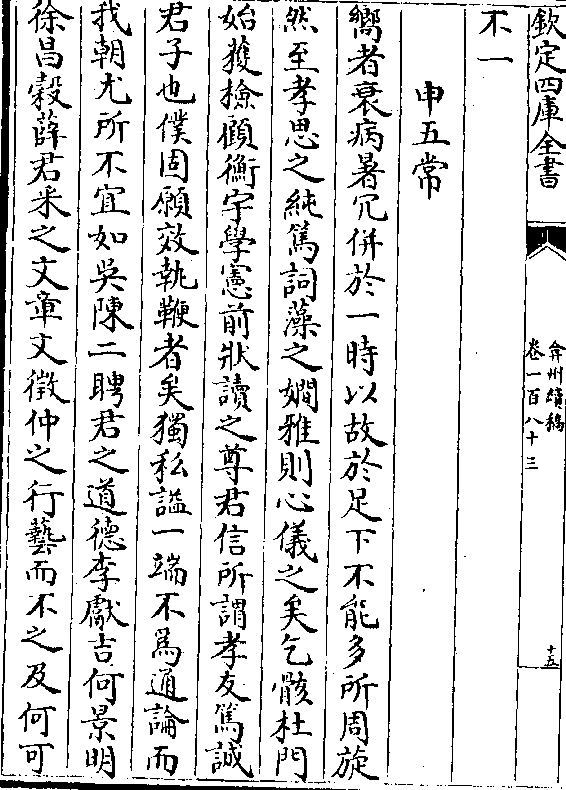 欽定四庫全書
弇州續稿
卷一百八十三
十五
不一
申五常
嚮者衰病暑冗併於一時以故於足下不能多所周旋
然至孝思之純篤詞藻之嫺雅則心儀之矣乞骸杜門
始獲檢顧衡宇學憲前狀讀之尊君信所謂孝友篤誠
君子也僕固願效執鞭者矣獨私諡一端不為通論而
我朝尤所不宜如吳陳二聘君之道德李獻吉何景明
徐昌穀薛君采之文章文徵仲之行藝而不之及何可